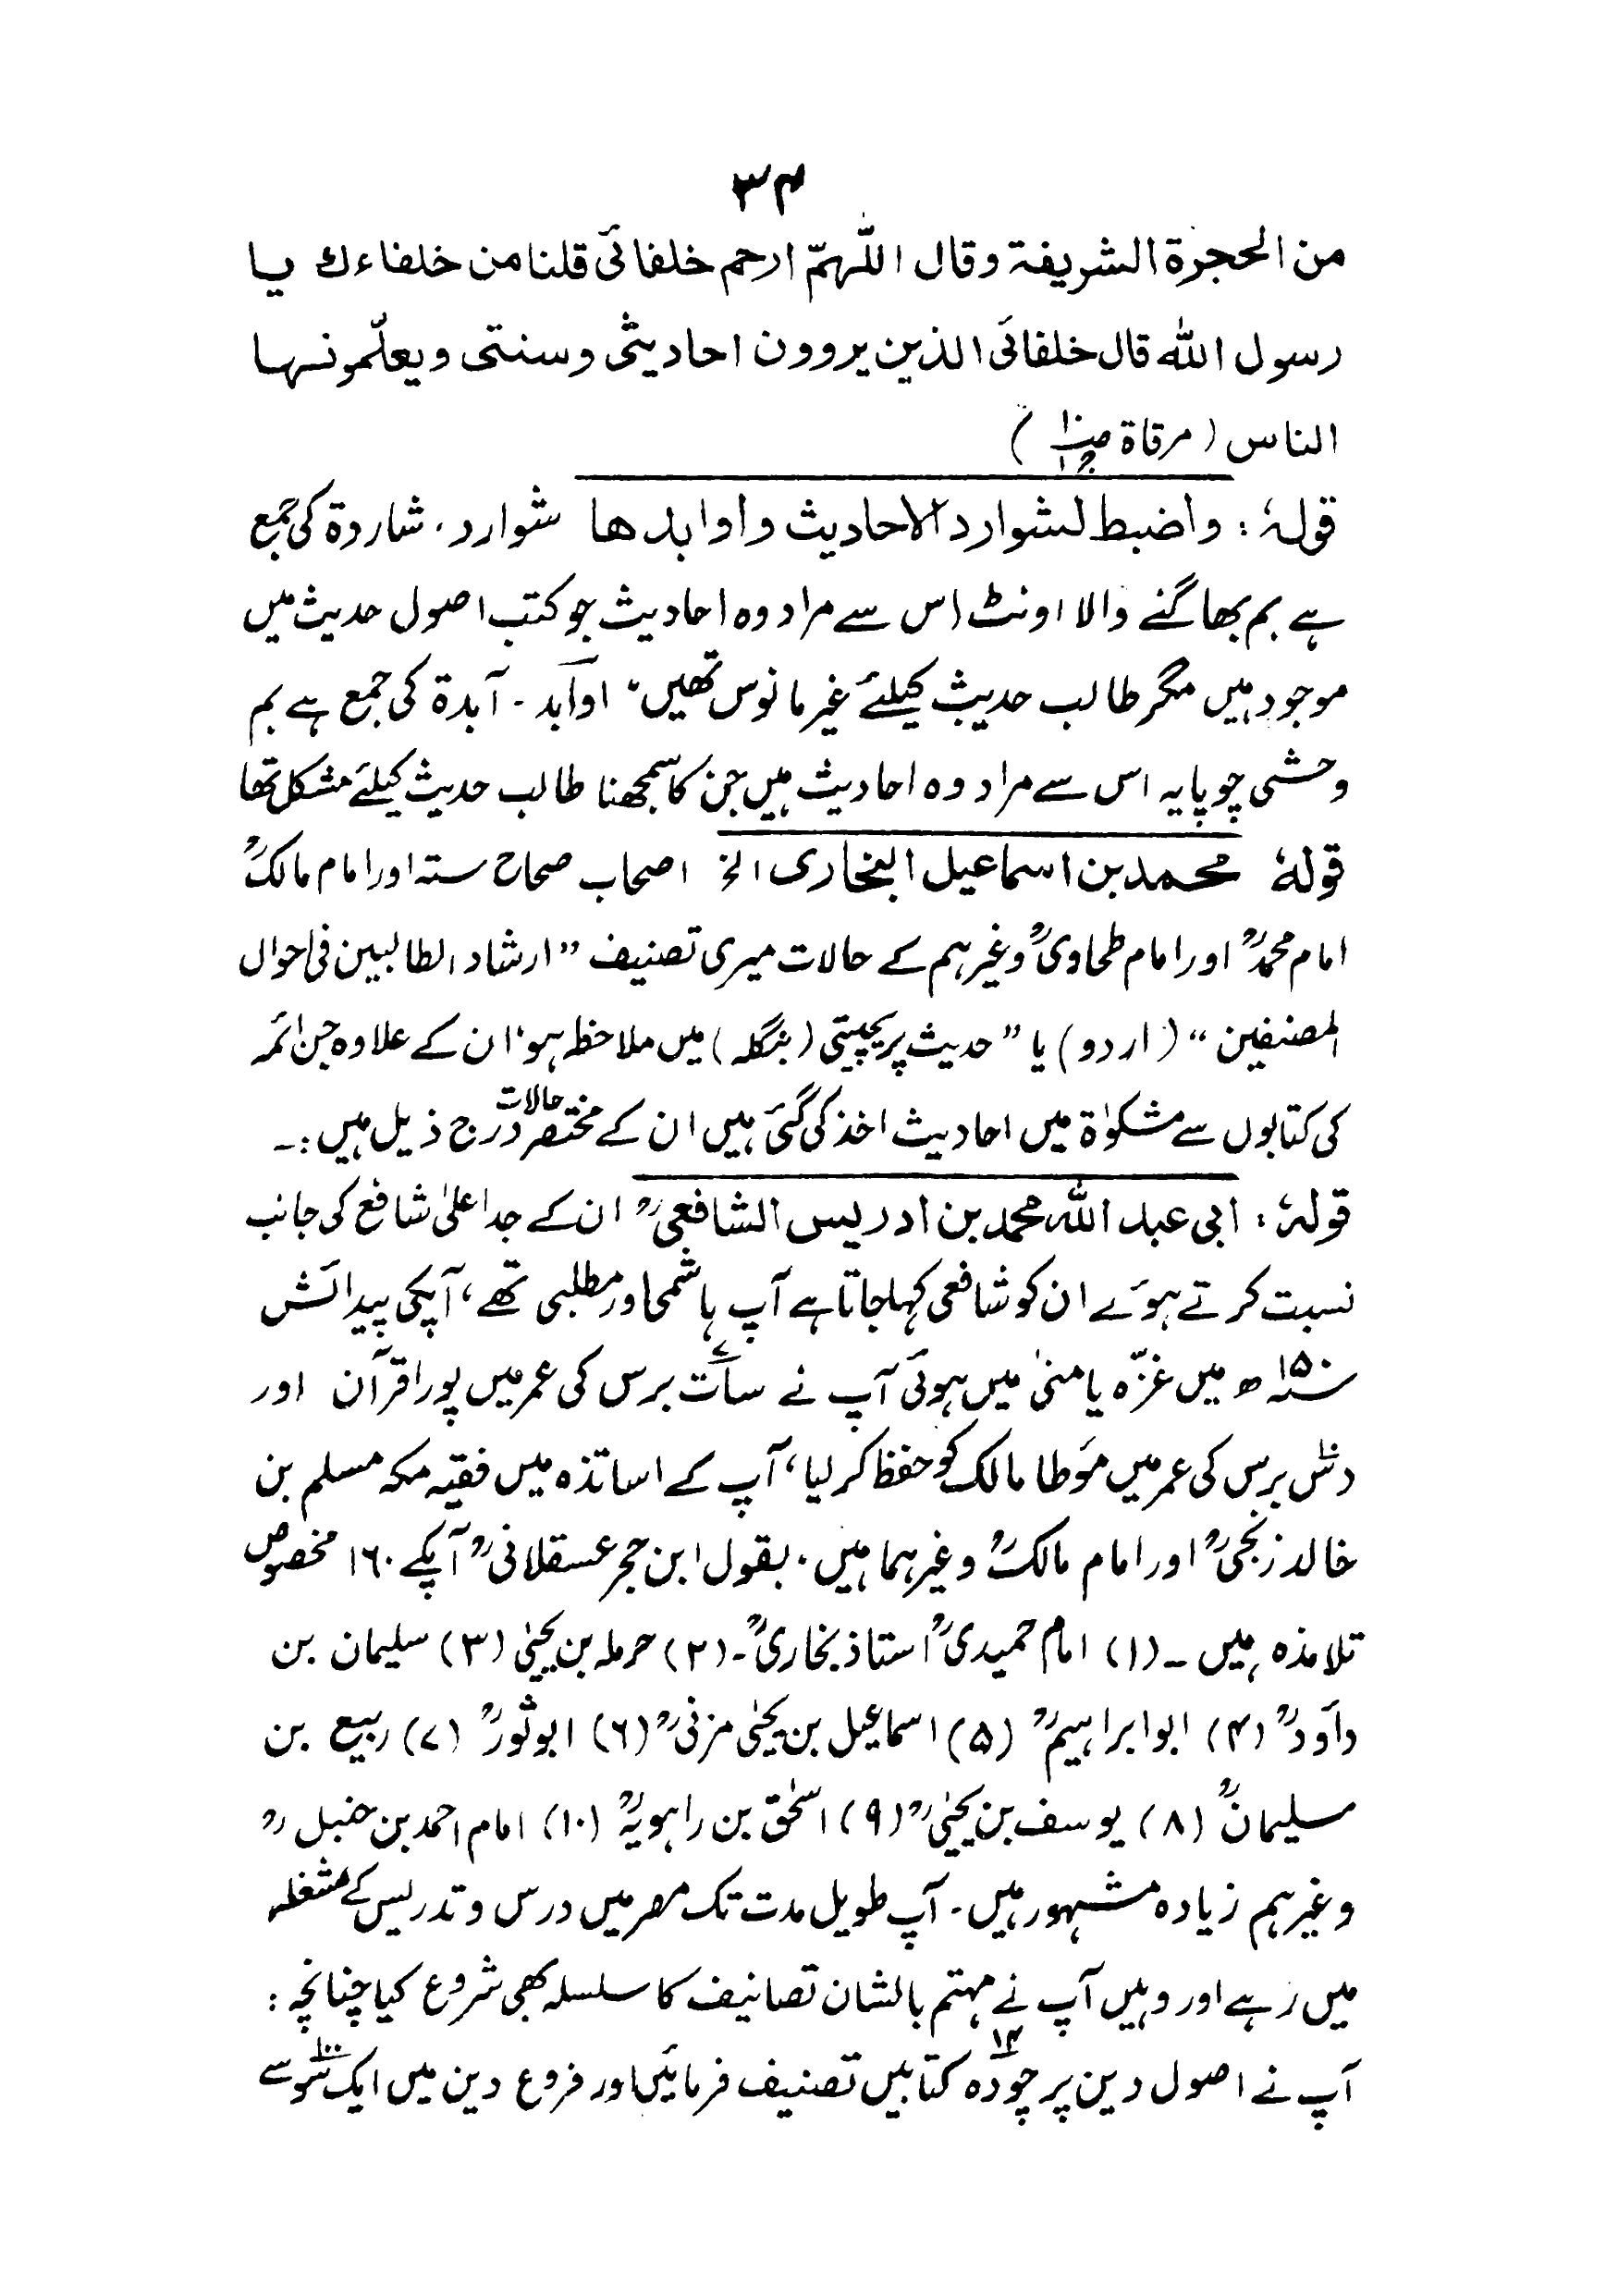 ۳۴
من الحجرة الشريفة وقال اللّهمّ ارحم خلفائی قلنا من خلفاءك يا
رسول الله قال خلفائی الذين يروون احاديثی وسنتی ويعلّمونها
الناس (مرقاة ص۱۰ ج۱)
قولہٗ : واضبط لشوارد الاحاديث واوابدها شوارد ، شاردة کی جمع
ہے بم بھاگنے والا اونٹ اس سے مراد وہ احادیث جو کتب اصول حدیث میں
موجود ہیں مگر طالب حدیث کیلئے غیر مانوس تھیں، اوابد ۔ آبدة کی جمع ہے بم
وحشی چوپایہ اس سے مراد وہ احادیث ہیں جن کا سمجھنا طالب حدیث کیلئے مشکل تھا
قولہٗ محمد بن اسماعیل البخاری الخ اصحاب صحاح ستہ اور امام مالکؒ
امام محمدؒ اور امام طحاویؒ وغیرہم کے حالات میری تصنیف ”ارشاد الطالبین فی احوال
المصنفین“ (اردو) یا ”حدیث پریچیتی (بنگلہ) میں ملاحظہ ہو، ان کے علاوہ جن ائمہ
کی کتابوں سے مشکوٰۃ میں احادیث اخذ کی گئی ہیں ان کے مختصر حالات درج ذیل ہیں :۔
قولہٗ : ابی عبد اللہ محمد بن ادریس الشافعیؒ ان کے جد اعلیٰ شافع کی جانب
نسبت کرتے ہوئے ان کو شافعی کہا جاتا ہے آپ ہاشمی اور مطلبی تھے، آپکی پیدائش
سنہ ۱۵۰ ھ میں غزّہ یا منیٰ میں ہوئی آپ نے سات ۷ برس کی عمر میں پورا قرآن اور
دس۱۰ برس کی عمر میں مؤطا مالک کو حفظ کر لیا، آپ کے اساتذہ میں فقیہ مکہ مسلم بن
خالد زنجیؒ اور امام مالکؒ وغیرہما ہیں، بقول ابن حجر عسقلانیؒ آپکے ۱۶۰ مخصوص
تلامذہ ہیں ۔ (۱) امام حمیدیؒ استاذ بخاریؒ ۔ (۲) حرملہ بن یحییٰ (۳) سلیمان بن
داؤدؒ (۴) ابو ابراہیمؒ (۵) اسماعیل بن یحیٰی مزنیؒ (۶) ابوثورؒ (۷) ربیع بن
سلیمانؒ (۸) یوسف بن یحیٰیؒ (۹) اسحٰق بن راہویہؒ (۱۰) امام احمد بن حنبلؒ
وغیرہم زیادہ مشہور ہیں ۔ آپ طویل مدت تک مصر میں درس و تدریس کے مشغلہ
میں رہے اور وہیں آپ نے مہتم بالشان تصانیف کا سلسلہ بھی شروع کیا چنانچہ :
آپ نے اصول دین پر چودہ ۱۴ کتابیں تصنیف فرمائیں اور فروع دین میں ایک سو ۱۰۰ سے